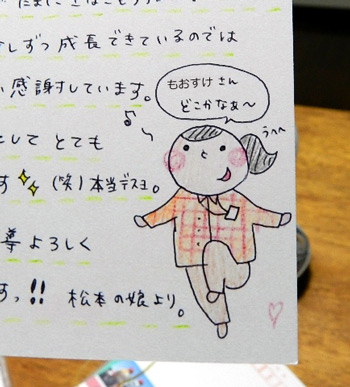 しずつ成長できているのでは
感謝しています。
もおすけさん
どこかなぁ〜
うへへ
してとても
す✨(笑)本当デスヨ。
導よろしく
すっ!! 松本の娘より。